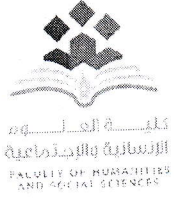 كليـــــة العلـــــوم
الإنسانية والإجتماعية
FACULTY OF HUMANITIES
AND SOCIAL SCIENCES